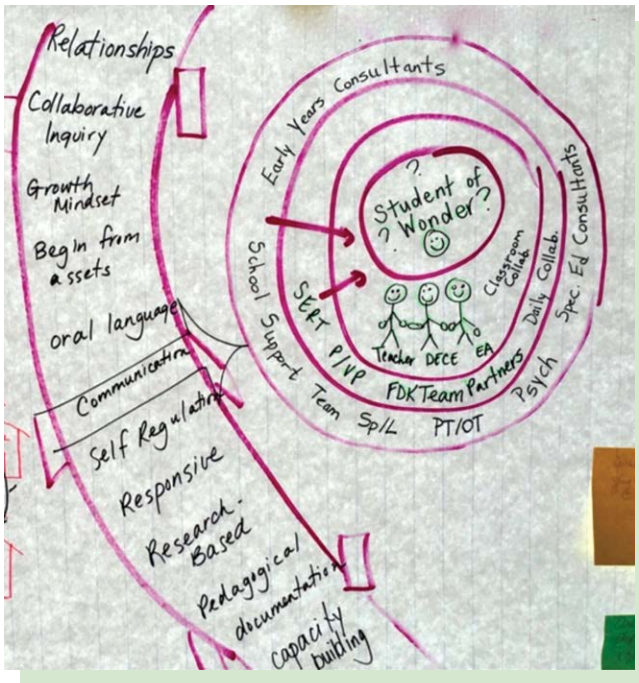 Relationships
Collaborative
Inquiry
Growth
Mindset
Begin from
assets
oral language
Communication
Self Regulation
Responsive
Research-
Based
Pedagogical
documentation
capacity
building
Early Years Consultants
Spec. Ed Consultants
School Support Team Sp/L PT/OT Psych
?
Student of
? Wonder?
Classroom
Collab.
Daily Collab.
SERT P/VP
Teacher DECE EA
FDK Team Partners